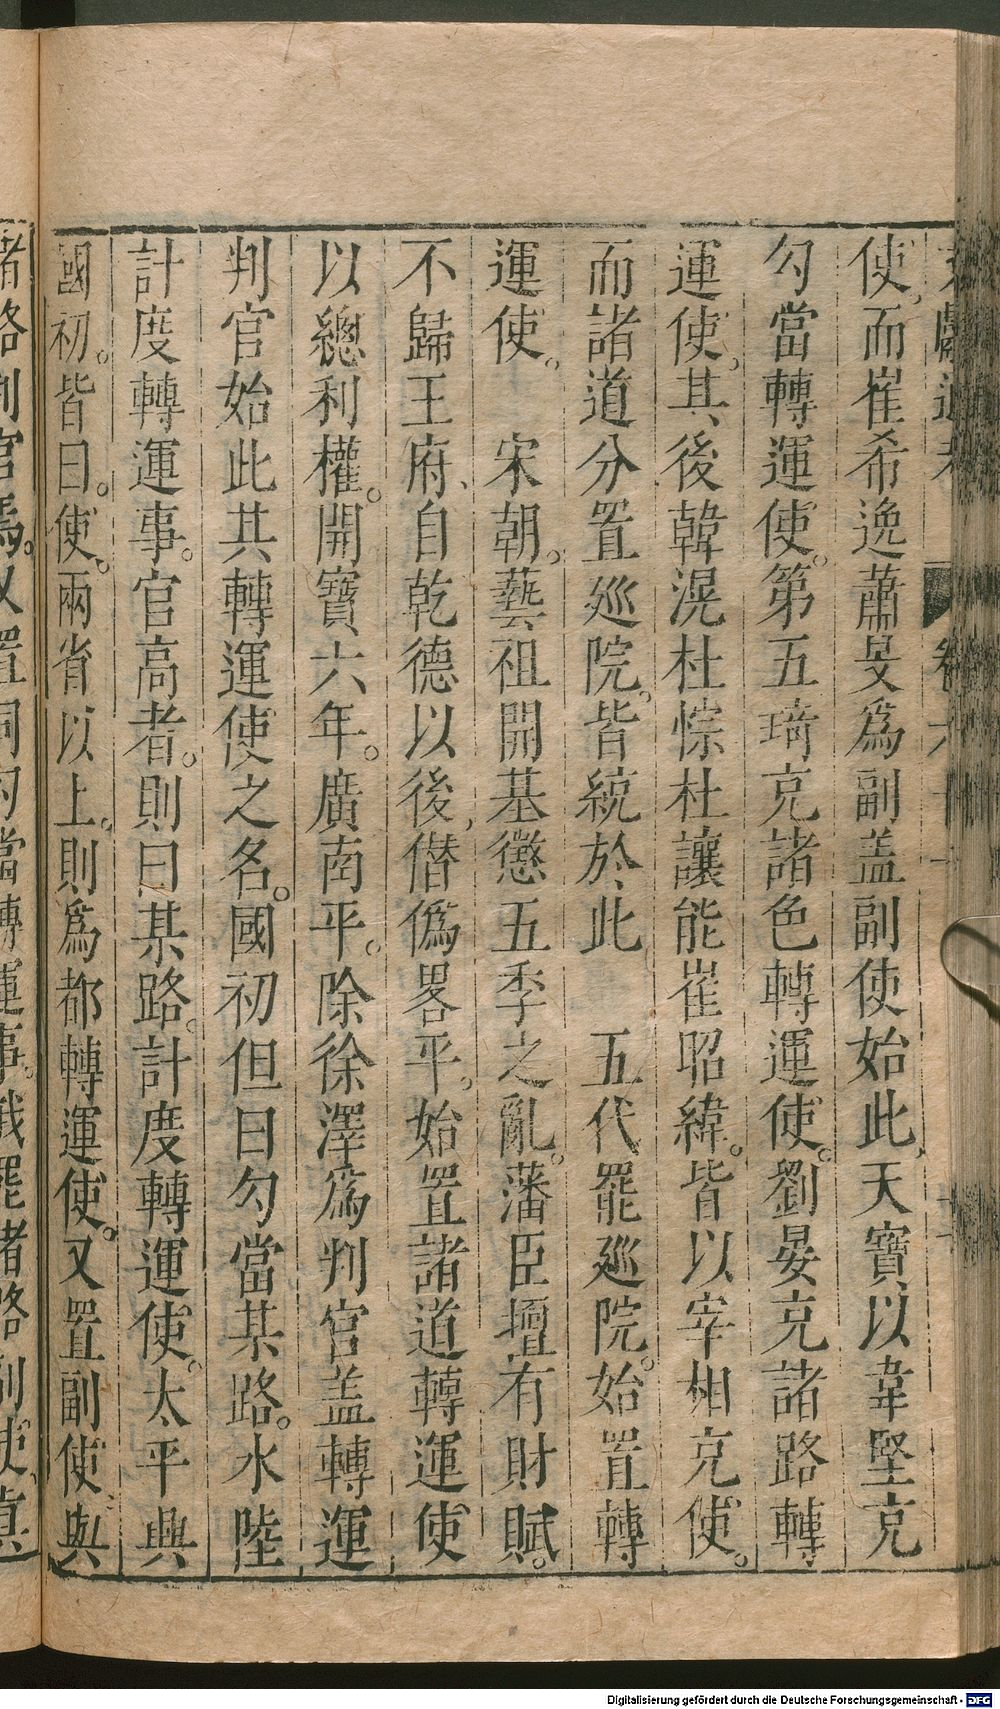 文獻通考 卷六十一 十一
使而崔希逸蕭旻爲副盖副使始此天寶以韋堅克
勾當轉運使。第五琦克諸色轉運使。劉晏克諸路轉
運使。其後韓滉杜悰杜讓能崔昭緯。皆以宰相克使。
而諸道分置廵院。皆統於此 五代罷廵院。始置轉
運使。 宋朝。藝祖開基懲五季之亂。藩臣擅有財賦。
不歸王府、自乾德以後、僣僞畧平。始置諸道轉運使
以總利權。開寶六年。廣南平。除徐澤爲判官盖轉運
判官始此其轉運使之名。國初但曰勾當某路。水陸
計度轉運事。官高者。則曰某路。計度轉運使。太平興
國初。皆曰。使。兩省以上。則爲都轉運使。又置副使與
諸路判官焉。又置同勾當轉運事。或罷諸路副使、眞
Digitalisierung gefördert durch die Deutsche Forschungsgemeinschaft - DFG